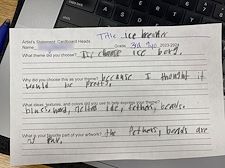 Title ice breaker
Artist's Statement: Cardboard Heads
Name Grade 3rd 2023-2024
What theme did you choose? Ice berg.
Why did you choose this as your theme? because I thought it
would be pretty.
What ideas, textures, and colors did you use to help express your theme?
blue, wood, ice, fethers, beads.
What is your favorite part of your artwork? the fethers, beads are
fun.